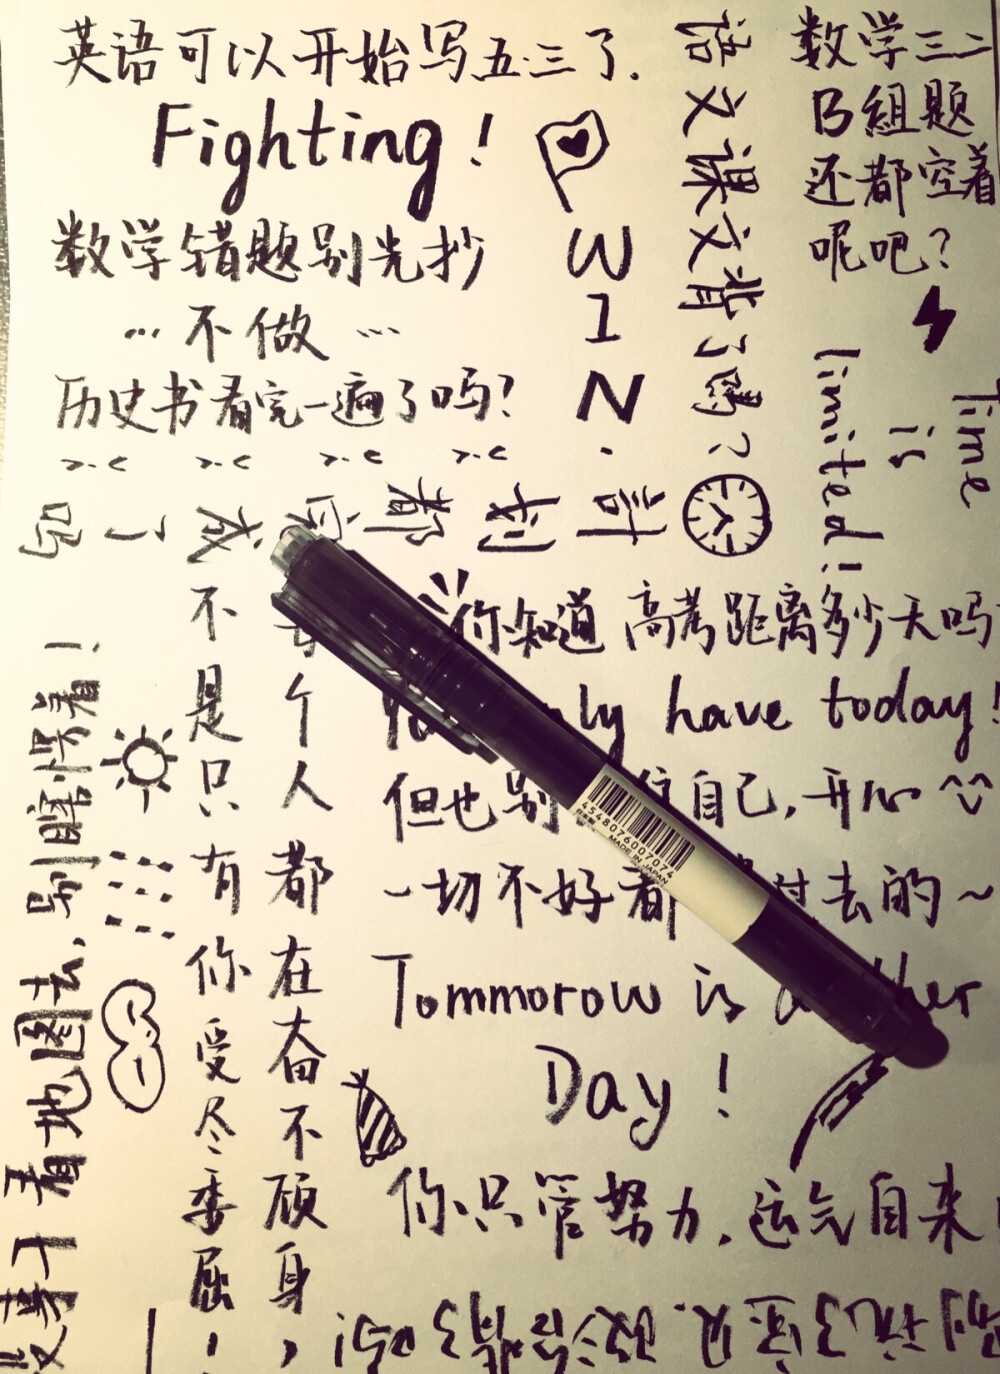 英语可以开始写五·三了.
Fighting!
数学错题别光抄
…不做…
历史书看完一遍了吗?
语文课文背了吗?
数学三二
B組题
还都空着
呢吧?
Time
is
limited!
計划都完成了吗
你知道高考距离多少天吗
only have today!
但也别 自己,开心^^
一切不好都 过去的~
Tommorow is another
Day!
你只管努力,运气自来
每个人都在奋不顾身,
不是只有你受尽委屈!
没事干看地图去,别瞎愣着!
4548076007074
MADE IN JAPAN